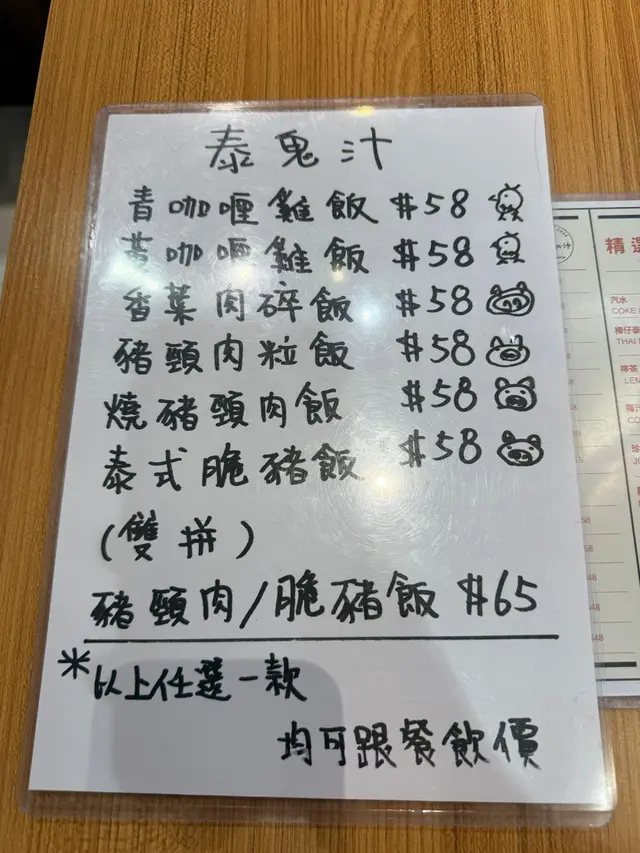 泰鬼汁
青咖喱雞飯 $58
黃咖喱雞飯 $58
香葉肉碎飯 $58
豬頸肉粒飯 $58
燒豬頸肉飯 $58
泰式脆豬飯 $58
(雙拼)
豬頸肉/脆豬飯 $65
*以上任選一款
均可跟餐飲價
汁
精選
汽水
COKE
THAI
檸茶